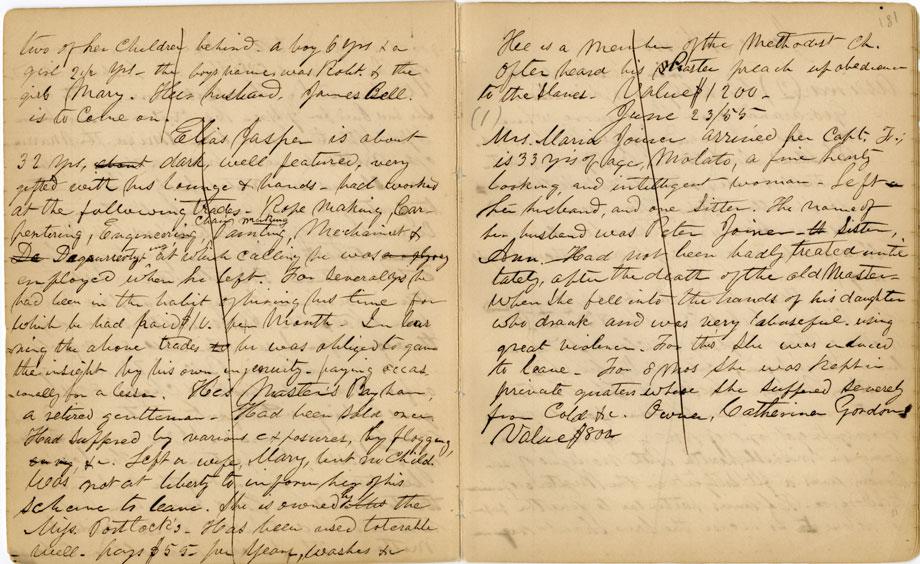 two of her Children behind. a boy 6 yrs & a
girl 2½ yrs — the boys names was Robt. & the
girb Mary. Her husband James Bell.
is to Come on.
Elias Jasper is about
32 yrs, about dark, well featured, very
gifted with his lounge & hands — had worked
at the following trades — Rope making, Car-
pentering, Engineering, Chair making Painting, Mechinist &
Da Daguerretyping at which calling he was
employed when he left. For several yrs he
had been in the habit of hiring his time for
which he had paid $10. per Month — In lear
ning the above trades he was obliged to gain
the insight by his own ingenuity — paying occas
-ionally for a lesson. His Master's Bayham,
a retired gentleman — Had been sold once
Had suffered by various exposures, by flogging,
&c. Left a wife, Mary, but no Child.
Was not at liberty to inform her of his
scheme to leave. She is owned by the
Miss. Portlock's — Has been used tolerable
well — pays $55 — per Year, washes &
181
Hee is a member of the Methodist Ch.
Often heard his Master preach up obedience
to the slaves. Value $1200 —
June 23/55
(1) Mrs. Maria Joiner arrived per Capt. F.;
is 33 yrs of age, Molato, a fine hearty
looking and intelligent woman — Left
her husband, and one sister. The name of
her husband was Peter Joiner — Sister,
Ann. — Had not been badly treated untill
lately, after the death of the old Master —
When she fell into the hands of his daughter
who drank and was very abuseful. using
great violence. For this she was induced
to leave — For 8 Mos she was kept in
private quaters where she suffered severely
from Cold &c. Owner, Catherine Gordon
Value $800